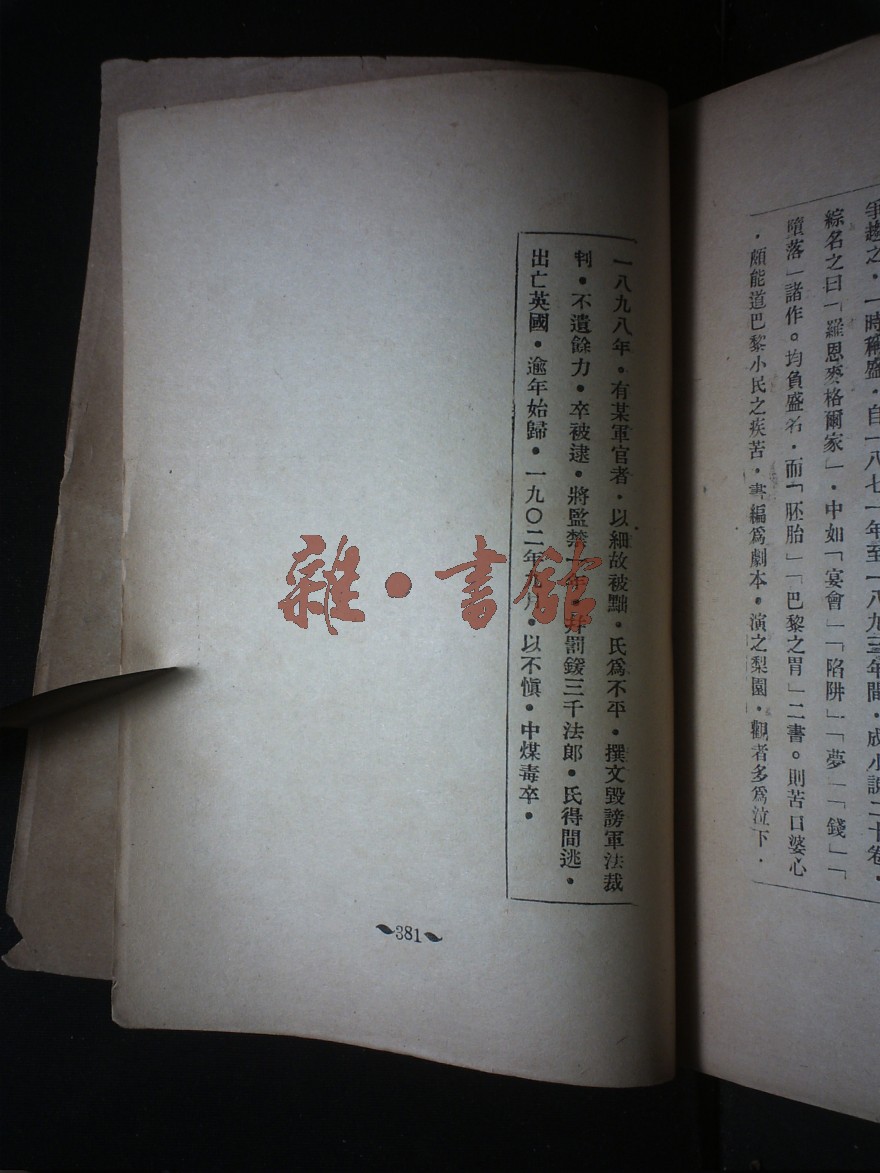 爭趨之．一時稱盛．自一八七一年至一八九三年間．成小說二十卷．
綜名之曰「羅恩麥格爾家」．中如「宴會」「陷阱」「夢」「錢」「
墮落」諸作。均負盛名．而「胚胎」「巴黎之胃」二書。則苦口婆心
．頗能道巴黎小民之疾苦．書編爲劇本．演之梨園．觀者多爲泣下．
一八九八年。有某軍官者．以細故被黜．氏爲不平．撰文毀謗軍法裁
判．不遺餘力．卒被逮．將監禁一年．并罰鍰三千法郎．氏得間逃．
出亡英國．逾年始歸．一九〇二年九月．以不愼．中煤毒卒．
381
雜·書館